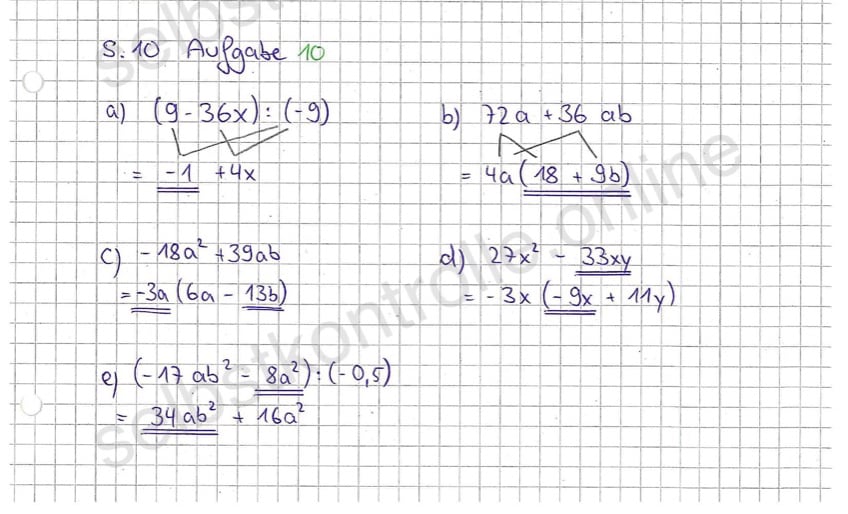 S. 10 Aufgabe 10
a) (9 - 36x) : (-9)
= -1 + 4x
b) 72a + 36 ab
= 4a (18 + 9b)
c) -18a² + 39ab
= -3a (6a - 13b)
d) 27x² - 33xy
= -3x (-9x + 11y)
e) (-17 ab² - 8a²) : (-0,5)
= 34ab² + 16a²
selbstkontrolle.online